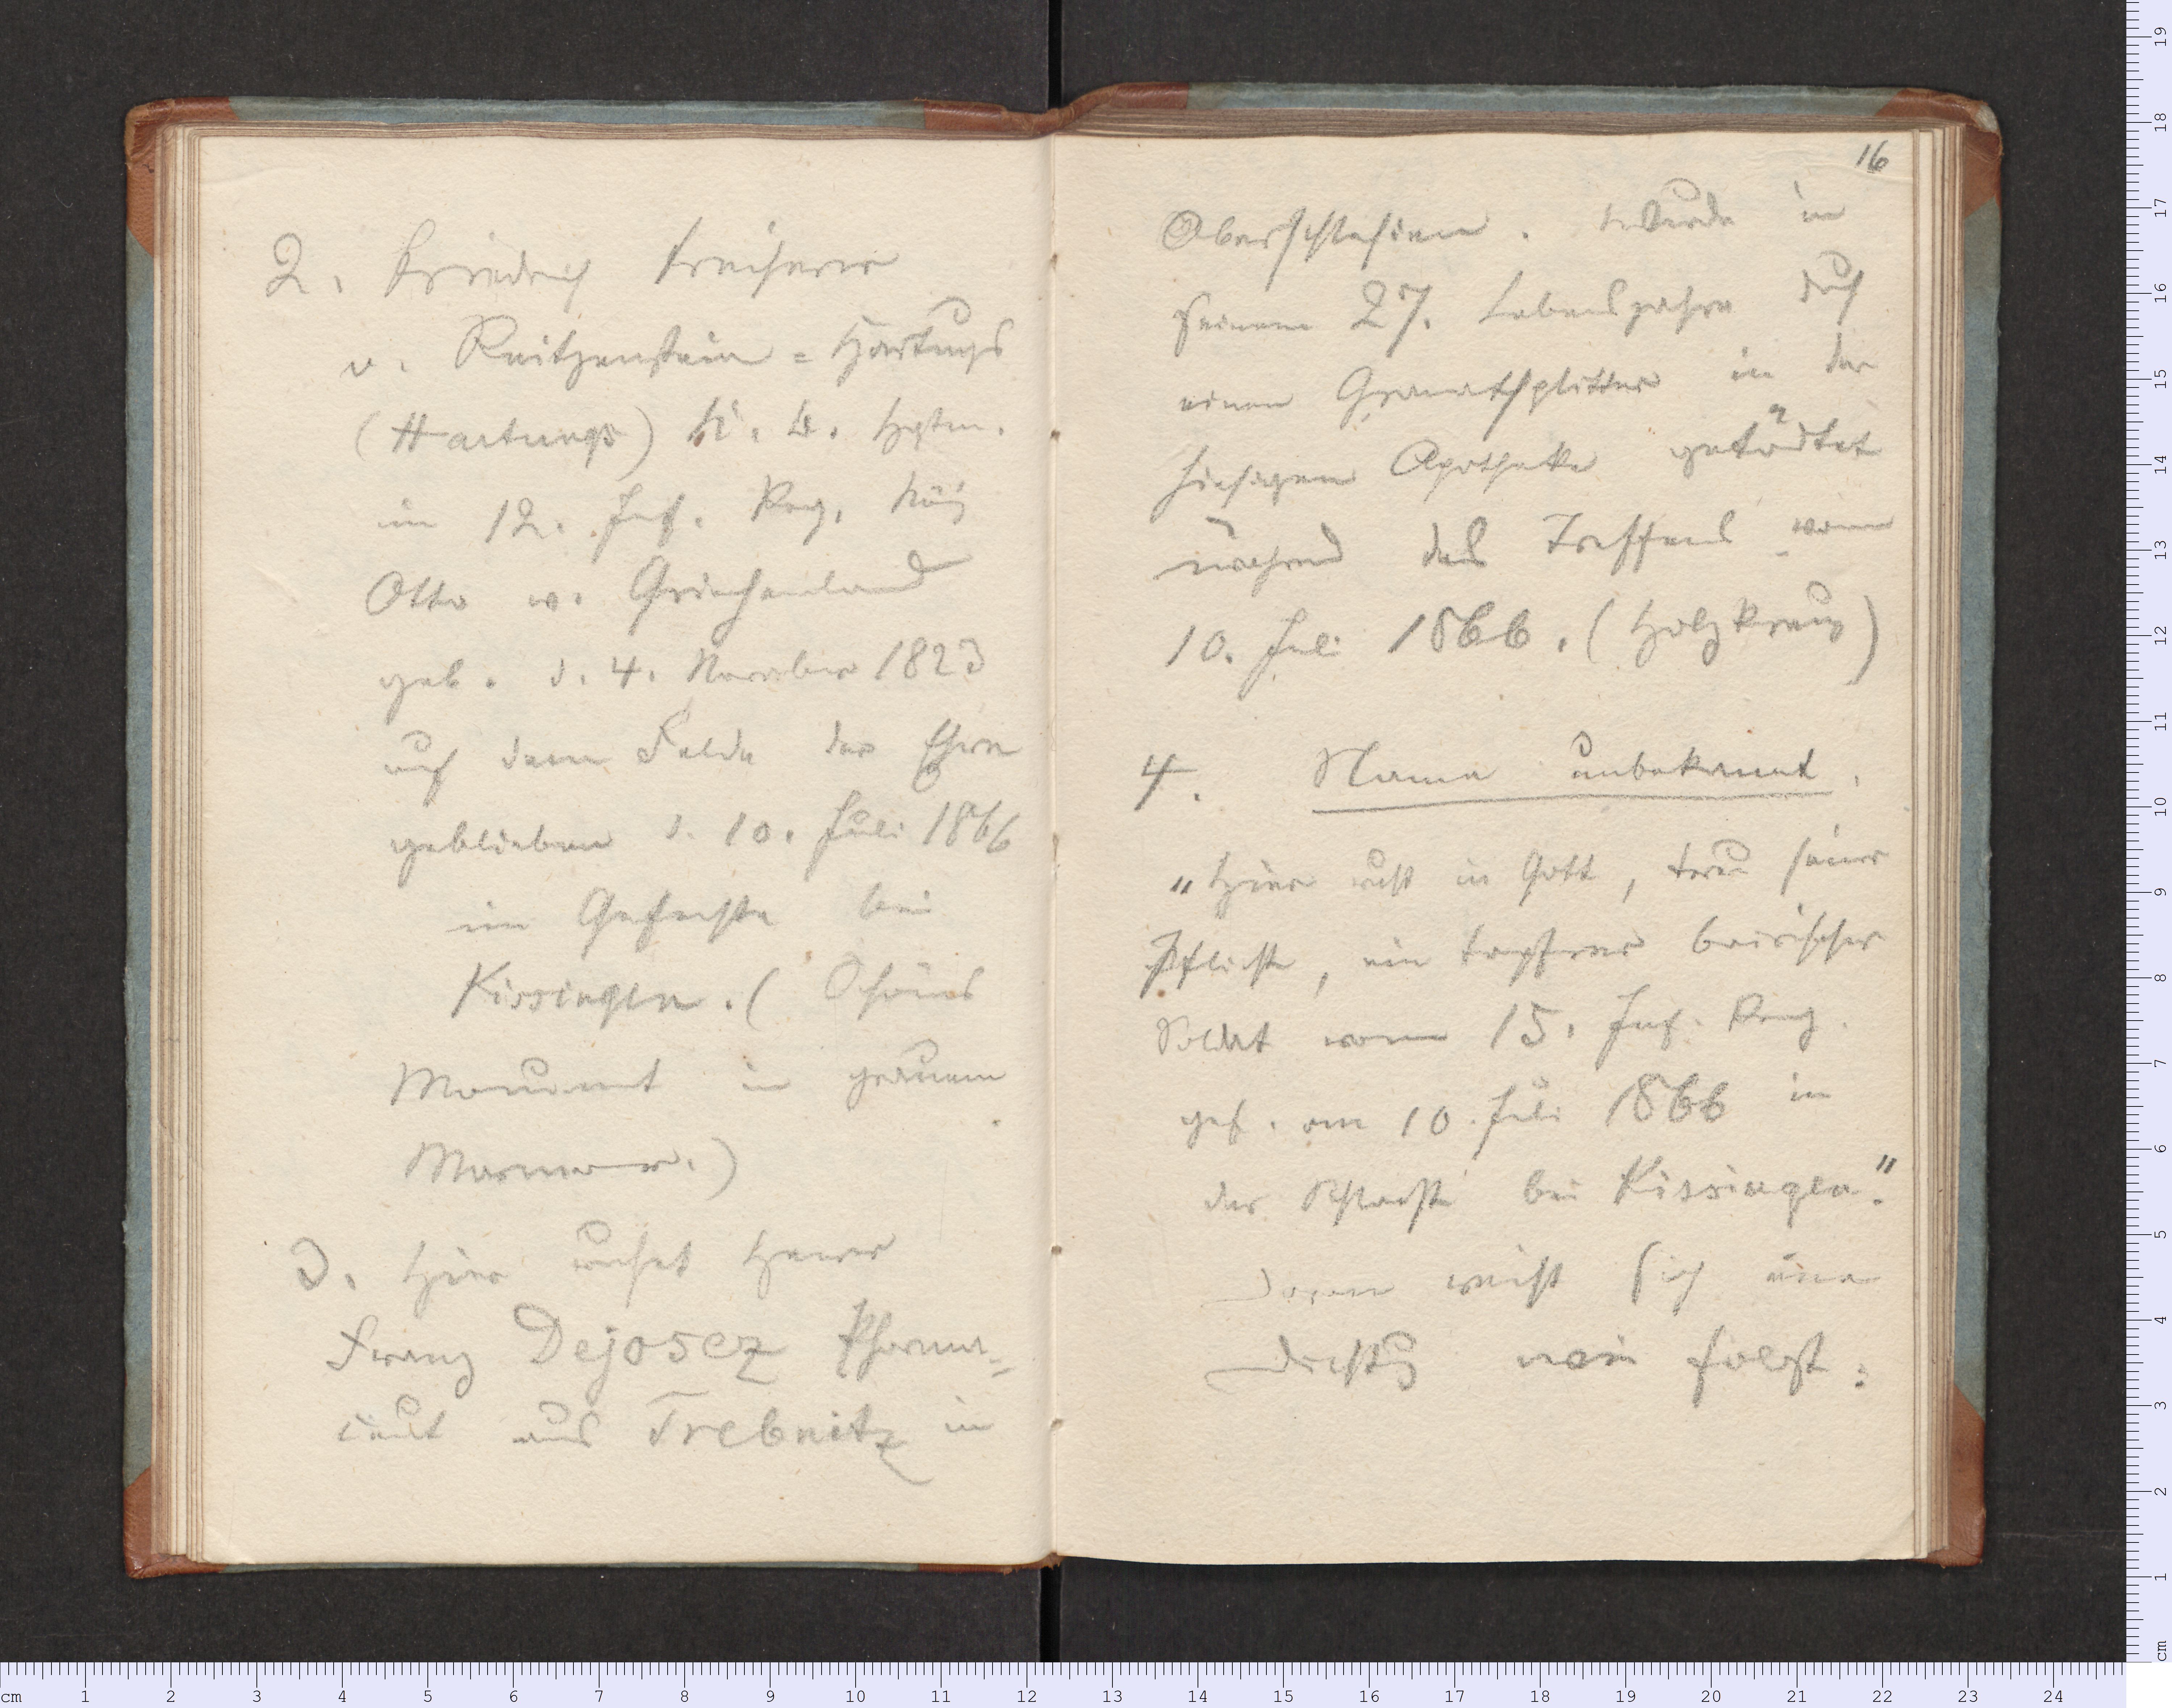 2. Friedrich Freiherr
v. Reitzenstein = Hartungs
(Hartungs) k. b. Hptm.
im 12. Inf. Reg. König
Otto v. Griechenland
geb. d. 4. November 1823
auf dem Felde der Ehre
geblieben d. 10. Juli 1866
im Gefechte bei
Kissingen. (Schönes
Monument in grauem
Marmor.)
3. Hier ruhet Herr
Franz Dejosez Pharma=
ceut aus Trebnitz in
16
Oberschlesien. Wurde in
seinem 27. Lebensjahre durch
einen Granatsplitter in der
hiesigen Apotheke getödtet
während des Treffens vom
10. Juli 1866. (Holzkreuz)
4. Name unbekannt.
"Hier ruht in Gott, treu seiner
Pflicht, ein tapferer bairischer
Soldat vom 15. Inf. Reg.
gef. am 10. Juli 1866 in
der Schlacht bei Kissingen."
Daran reiht sich eine
wie folgt: